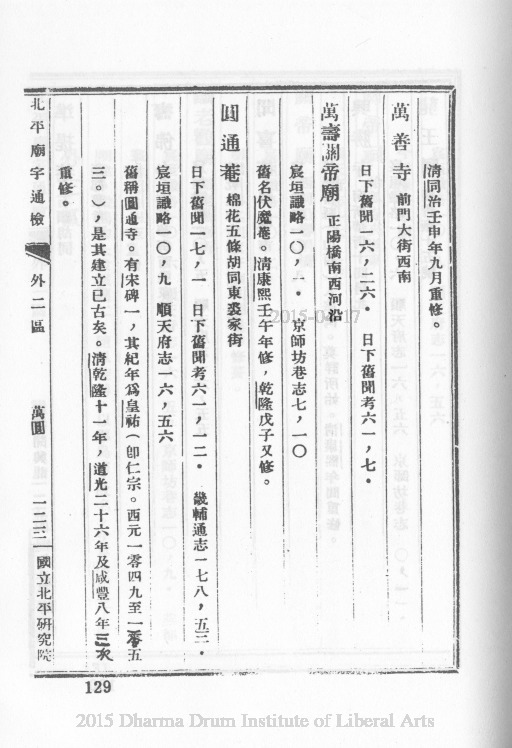 清同治壬申年九月重修。
萬善寺 前門大街西南
日下舊聞一六，二六· 日下舊聞考六一，七·
萬壽關帝廟 正陽橋南西河沿
宸垣識略一〇，一· 京師坊巷志七，一〇
舊名伏魔菴。清康熙壬午年修，乾隆戊子又修。
圓通菴 棉花五條胡同東裘家街
日下舊聞一七，一 日下舊聞考六一，一二· 畿輔通志一七八，五三·
宸垣識略一〇，九 順天府志一六，五六
舊稱圓通寺。有宋碑一，其紀年爲皇祐（卽仁宗。西元一零四九至一零五
三。），是其建立已古矣。清乾隆十一年，道光二十六年及咸豐八年三次
重修。
北平廟宇通檢 外二區 萬圓 一二三 國立北平研究院
129
2015-04-17
2015 Dharma Drum Institute of Liberal Arts